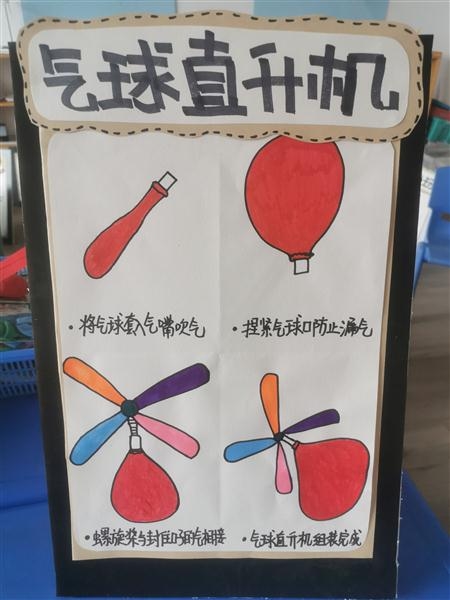 气球直升机
·将气球套入气嘴吹气
·捏紧气球口防止漏气
·螺旋桨与封住口气相接
·气球直升机组装完成